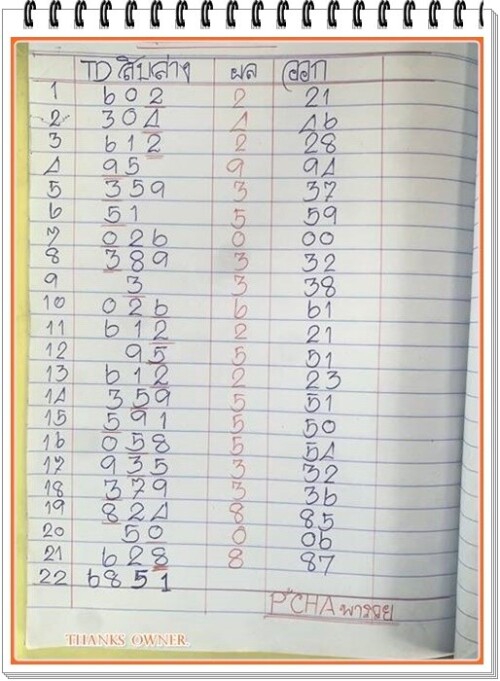 TD สิบล่าง ผล ออก
1 602 2 21
2 304 4 46
3 612 2 28
4 95 9 94
5 359 3 37
6 51 5 59
7 026 0 00
8 389 3 32
9 3 3 38
10 026 6 61
11 612 2 21
12 95 5 51
13 612 2 23
14 359 5 51
15 591 5 50
16 058 5 54
17 935 3 32
18 379 3 36
19 824 8 85
20 50 0 06
21 628 8 87
22 6851
P'CHA พารวย
THANKS OWNER.